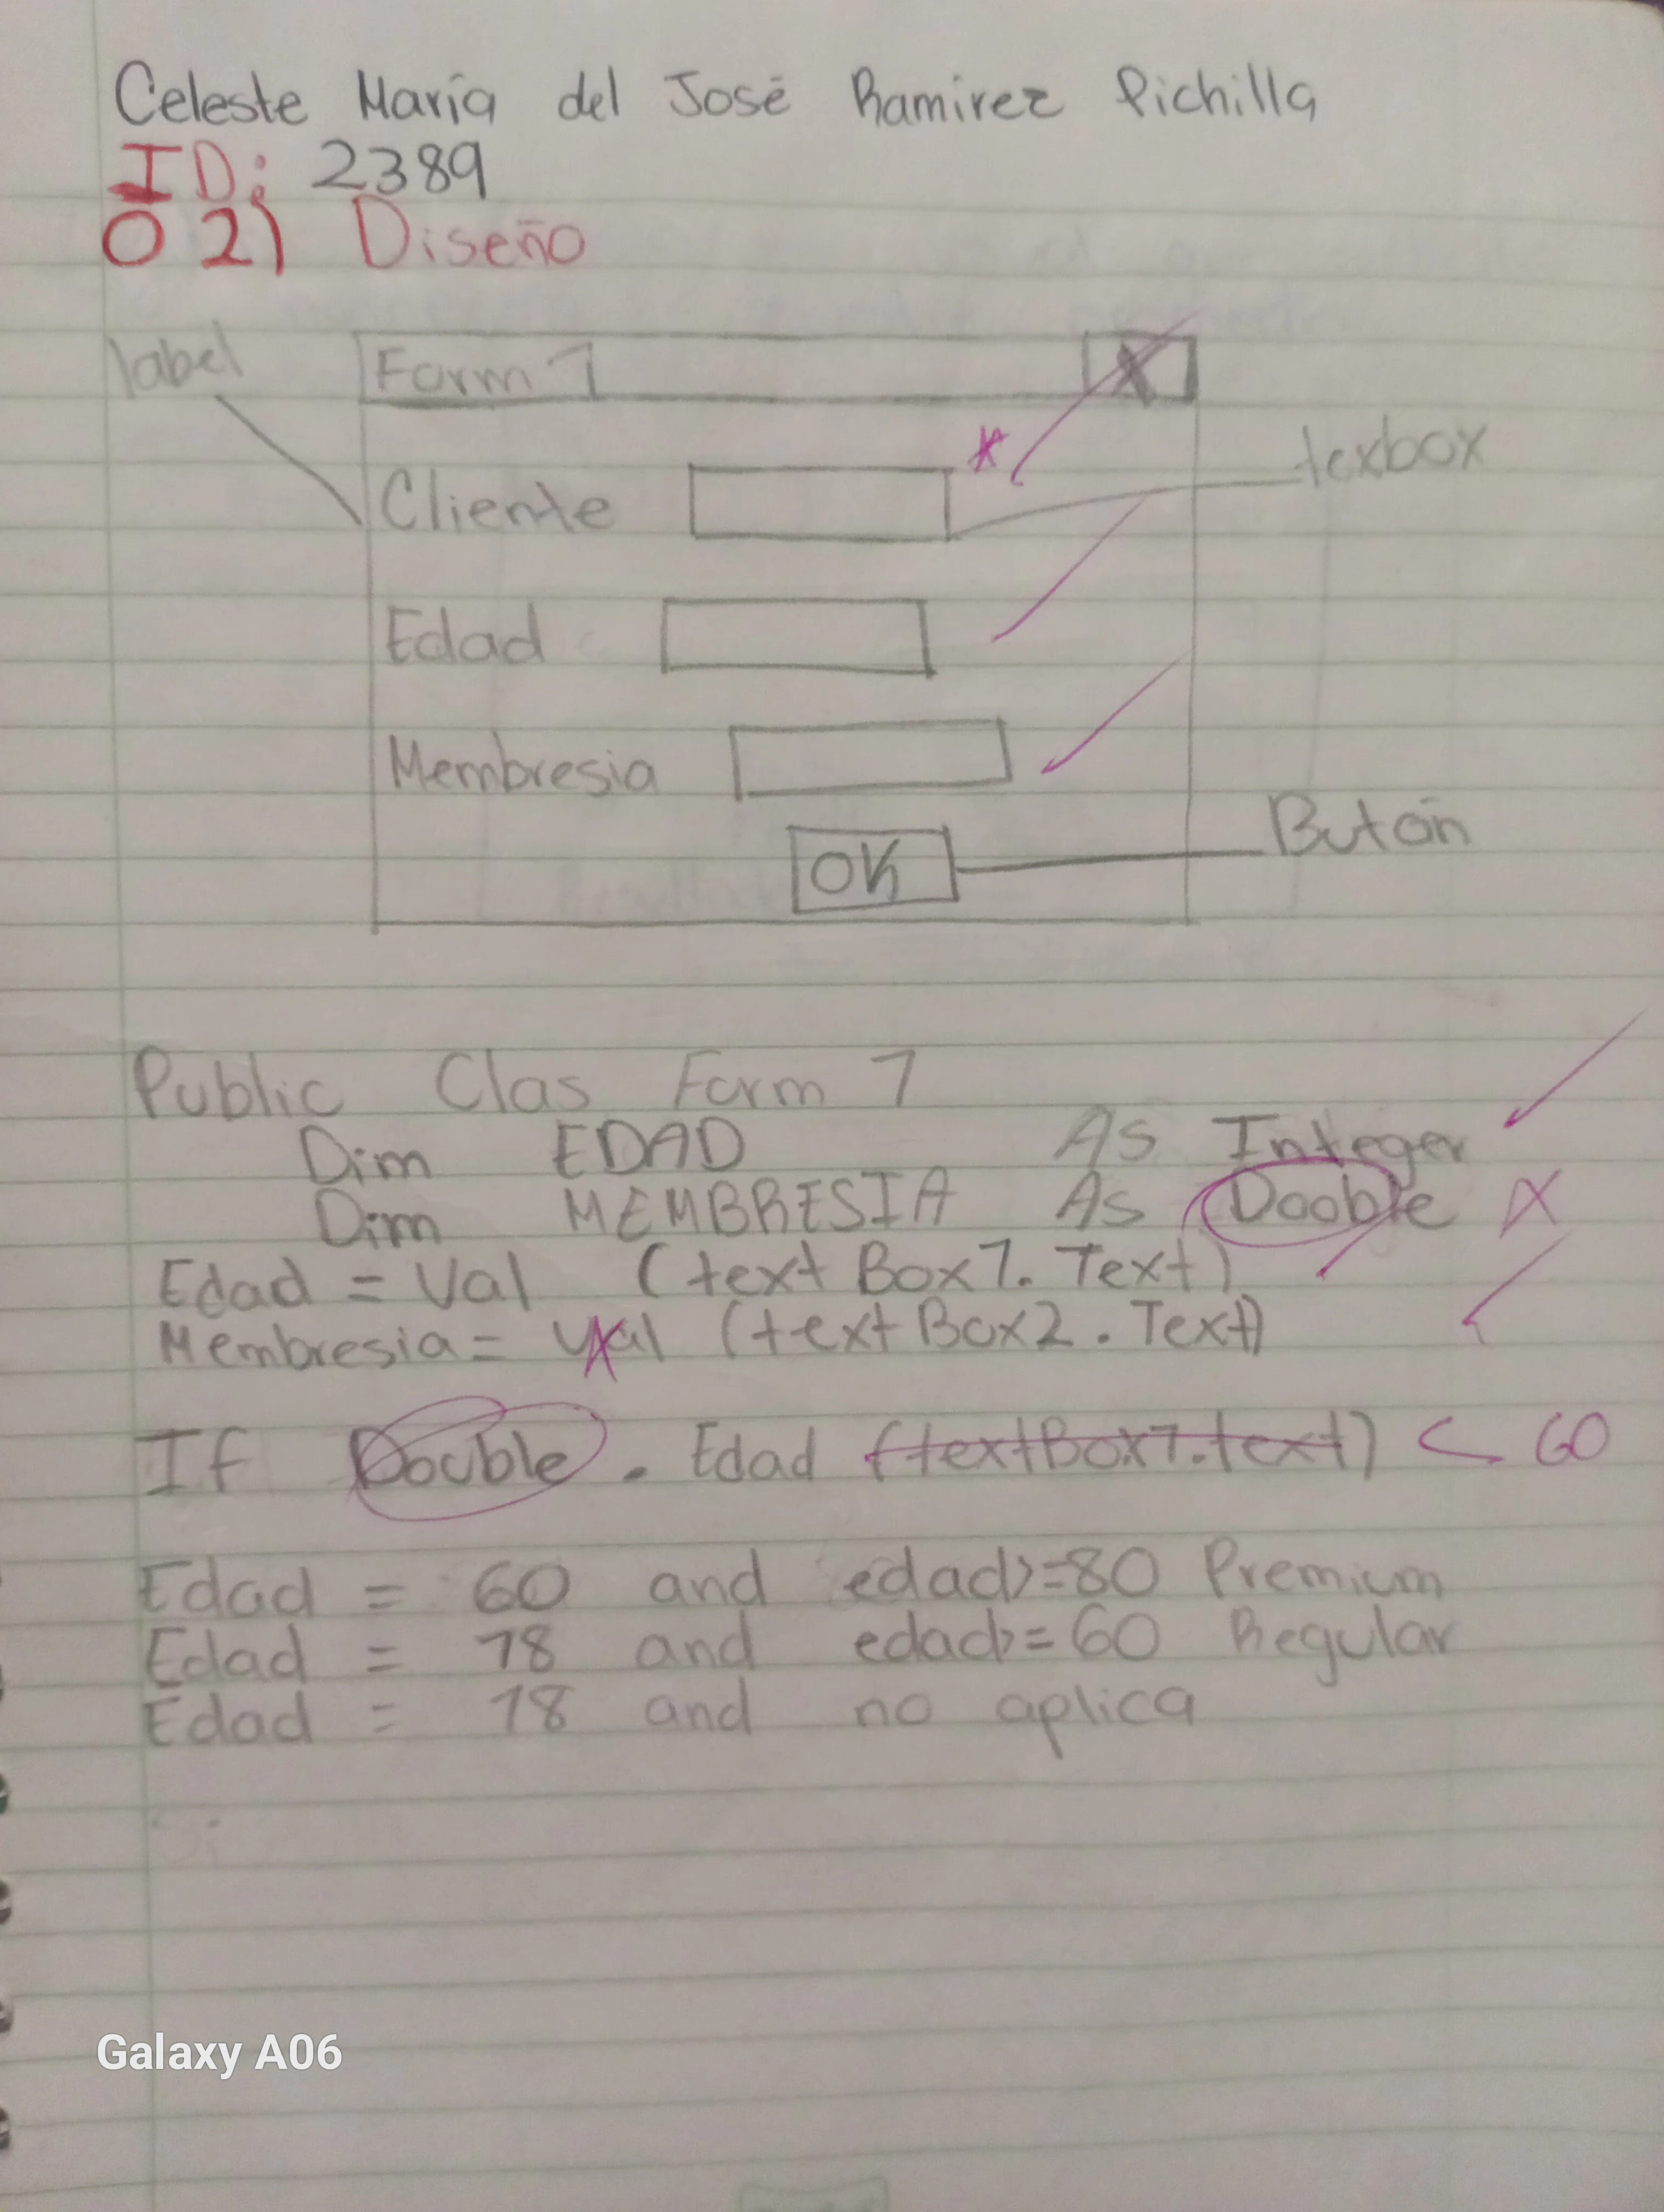 Celeste María del José Ramirez Pichilla
ID: 2389
02) Diseño
label
Form 1
X
Cliente
*
texbox
Edad
Membresia
OK
Butón
Public Clas Form 1
Dim EDAD As Integer
Dim MEMBRESIA As Dooble X
Edad = Val (text Box1. Text)
Membresia = Val (text Box2. Text)
If Double. Edad (textBox1.text) < 60
Edad = 60 and edad>=80 Premium
Edad = 18 and edad>=60 Regular
Edad = 18 and no aplica
Galaxy A06